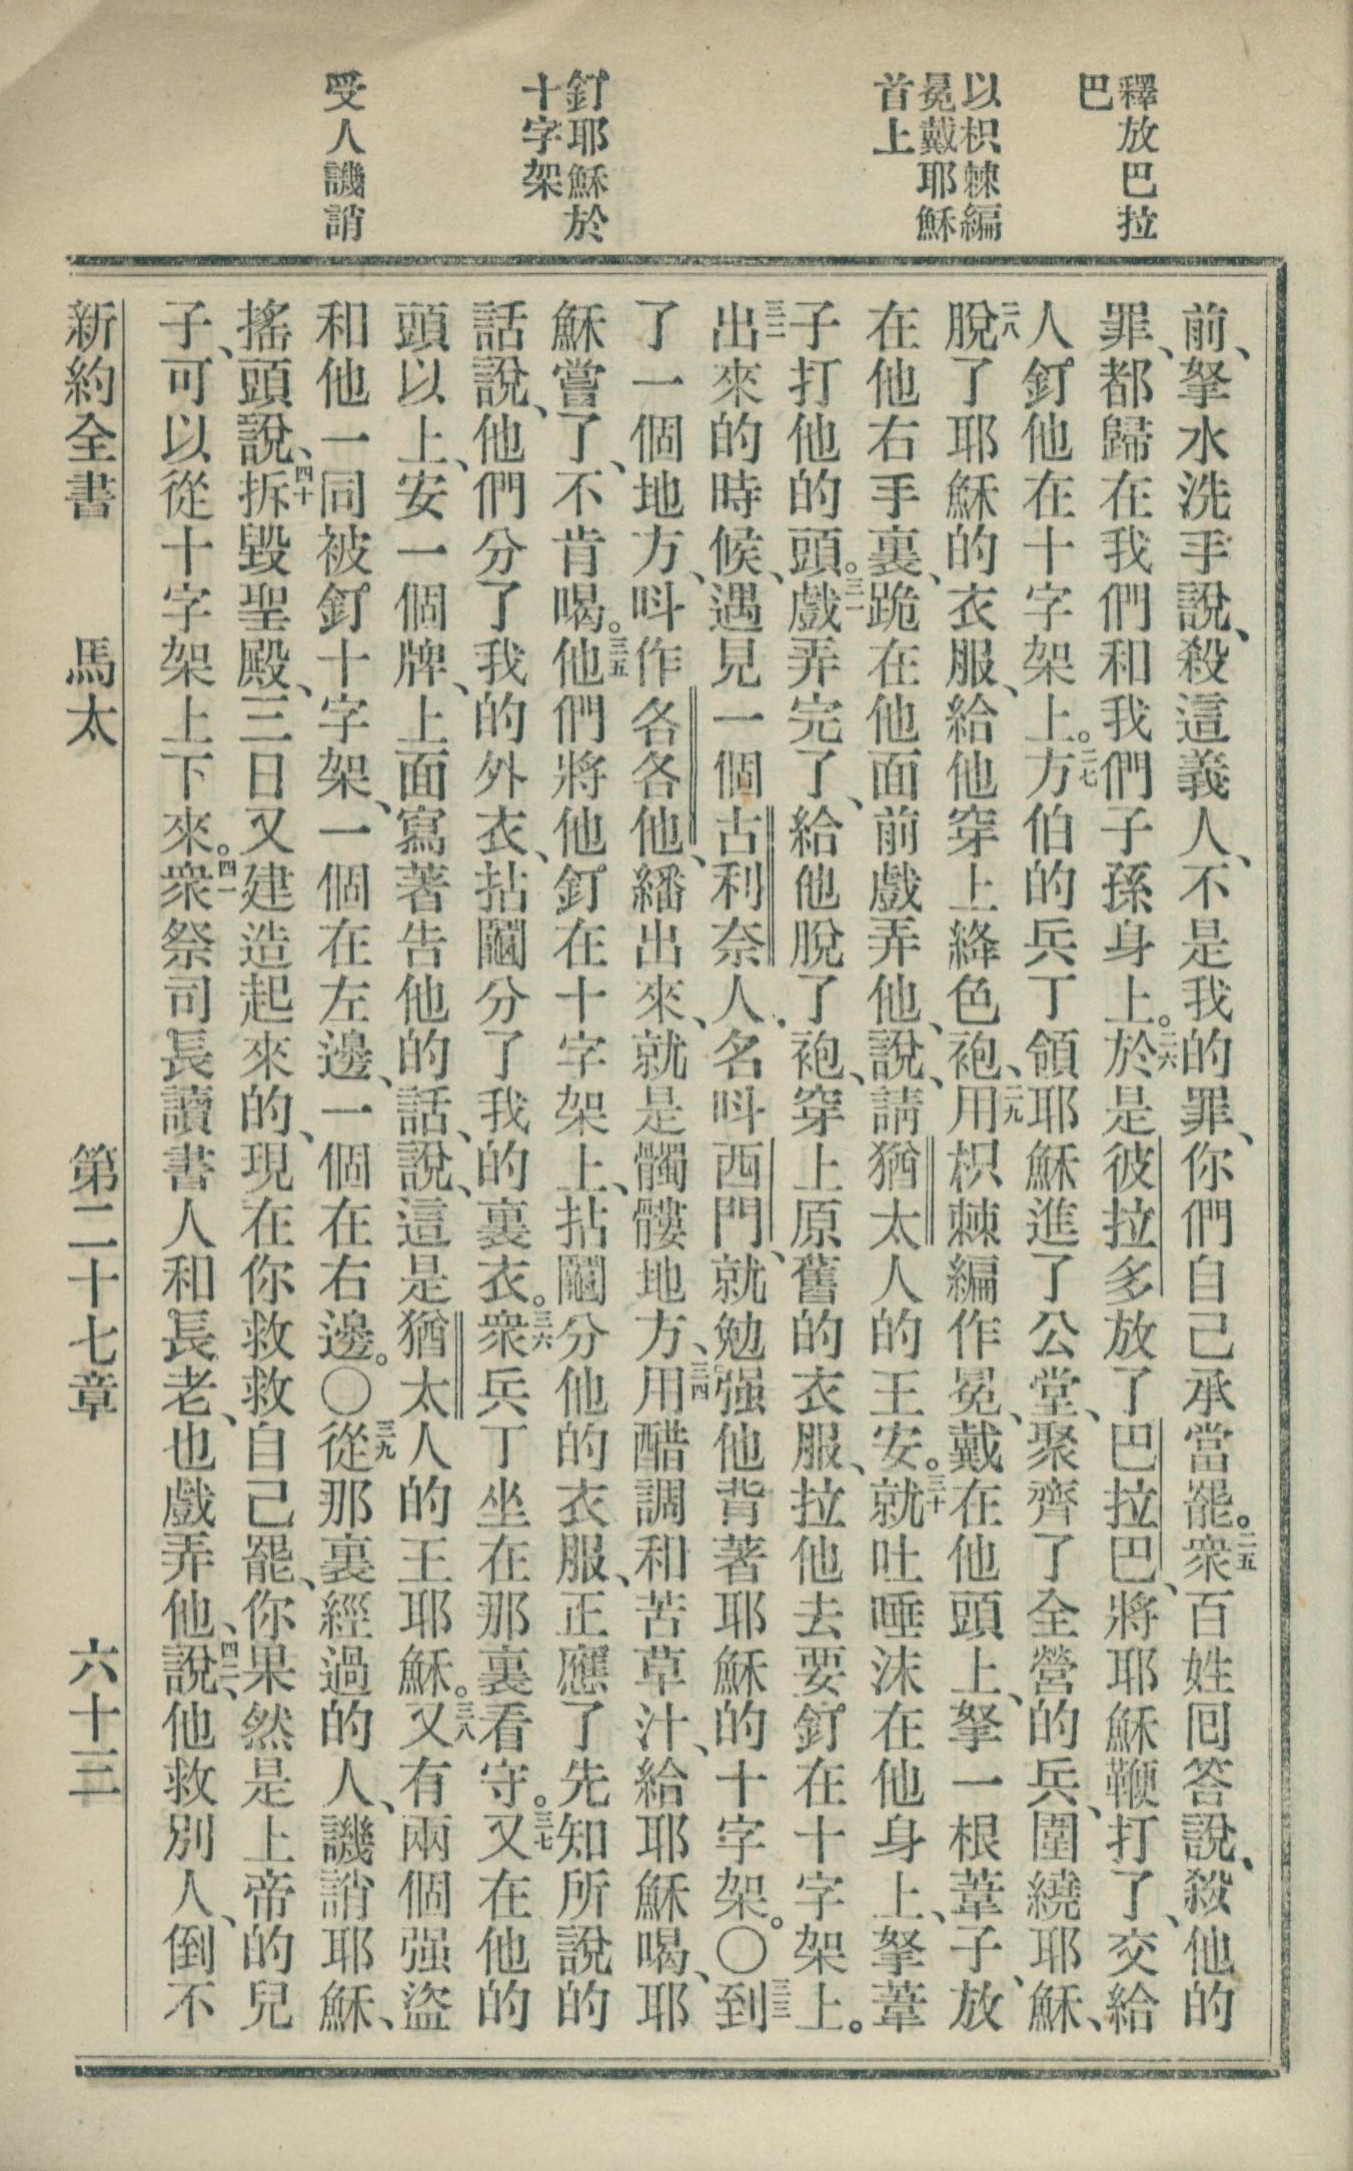 釋放巴拉
巴
以枳棘編
冕戴耶穌
首上
釘耶穌於
十字架
受人譏誚
前、拏水洗手說、殺這義人、不是我的罪、你們自己承當罷。二五衆百姓囘答說、殺他的
罪、都歸在我們和我們子孫身上。二六於是彼拉多放了巴拉巴、將耶穌鞭打了、交給
人釘他在十字架上。二七方伯的兵丁領耶穌進了公堂、聚齊了全營的兵、圍繞耶穌、
二八脫了耶穌的衣服、給他穿上絳色袍、二九用枳棘編作冕、戴在他頭上、拏一根葦子、放
在他右手裏、跪在他面前戲弄他、說、請猶太人的王安。三十就吐唾沫在他身上、拏葦
子打他的頭。三一戲弄完了、給他脫了袍、穿上原舊的衣服、拉他去要釘在十字架上。
三二出來的時候、遇見一個古利奈人、名呌西門、就勉强他背著耶穌的十字架。〇三三到
了一個地方、呌作各各他、繙出來、就是髑髏地方、三四用醋調和苦草汁、給耶穌喝、耶
穌嘗了、不肯喝。三五他們將他釘在十字架上、拈鬮分他的衣服、正應了先知所說的
話說、他們分了我的外衣、拈鬮分了我的裏衣。三六衆兵丁坐在那裏看守。三七又在他的
頭以上、安一個牌、上面寫著告他的話、說、這是猶太人的王耶穌。三八又有兩個强盜
和他一同被釘十字架、一個在左邊、一個在右邊。〇三九從那裏經過的人、譏誚耶穌、
搖頭說、四十拆毀聖殿、三日又建造起來的、現在你救救自己罷、你果然是上帝的兒
子、可以從十字架上下來。四一衆祭司長讀書人和長老、也戲弄他、說、四二他救別人、倒不
新約全書　馬太　第二十七章　六十三